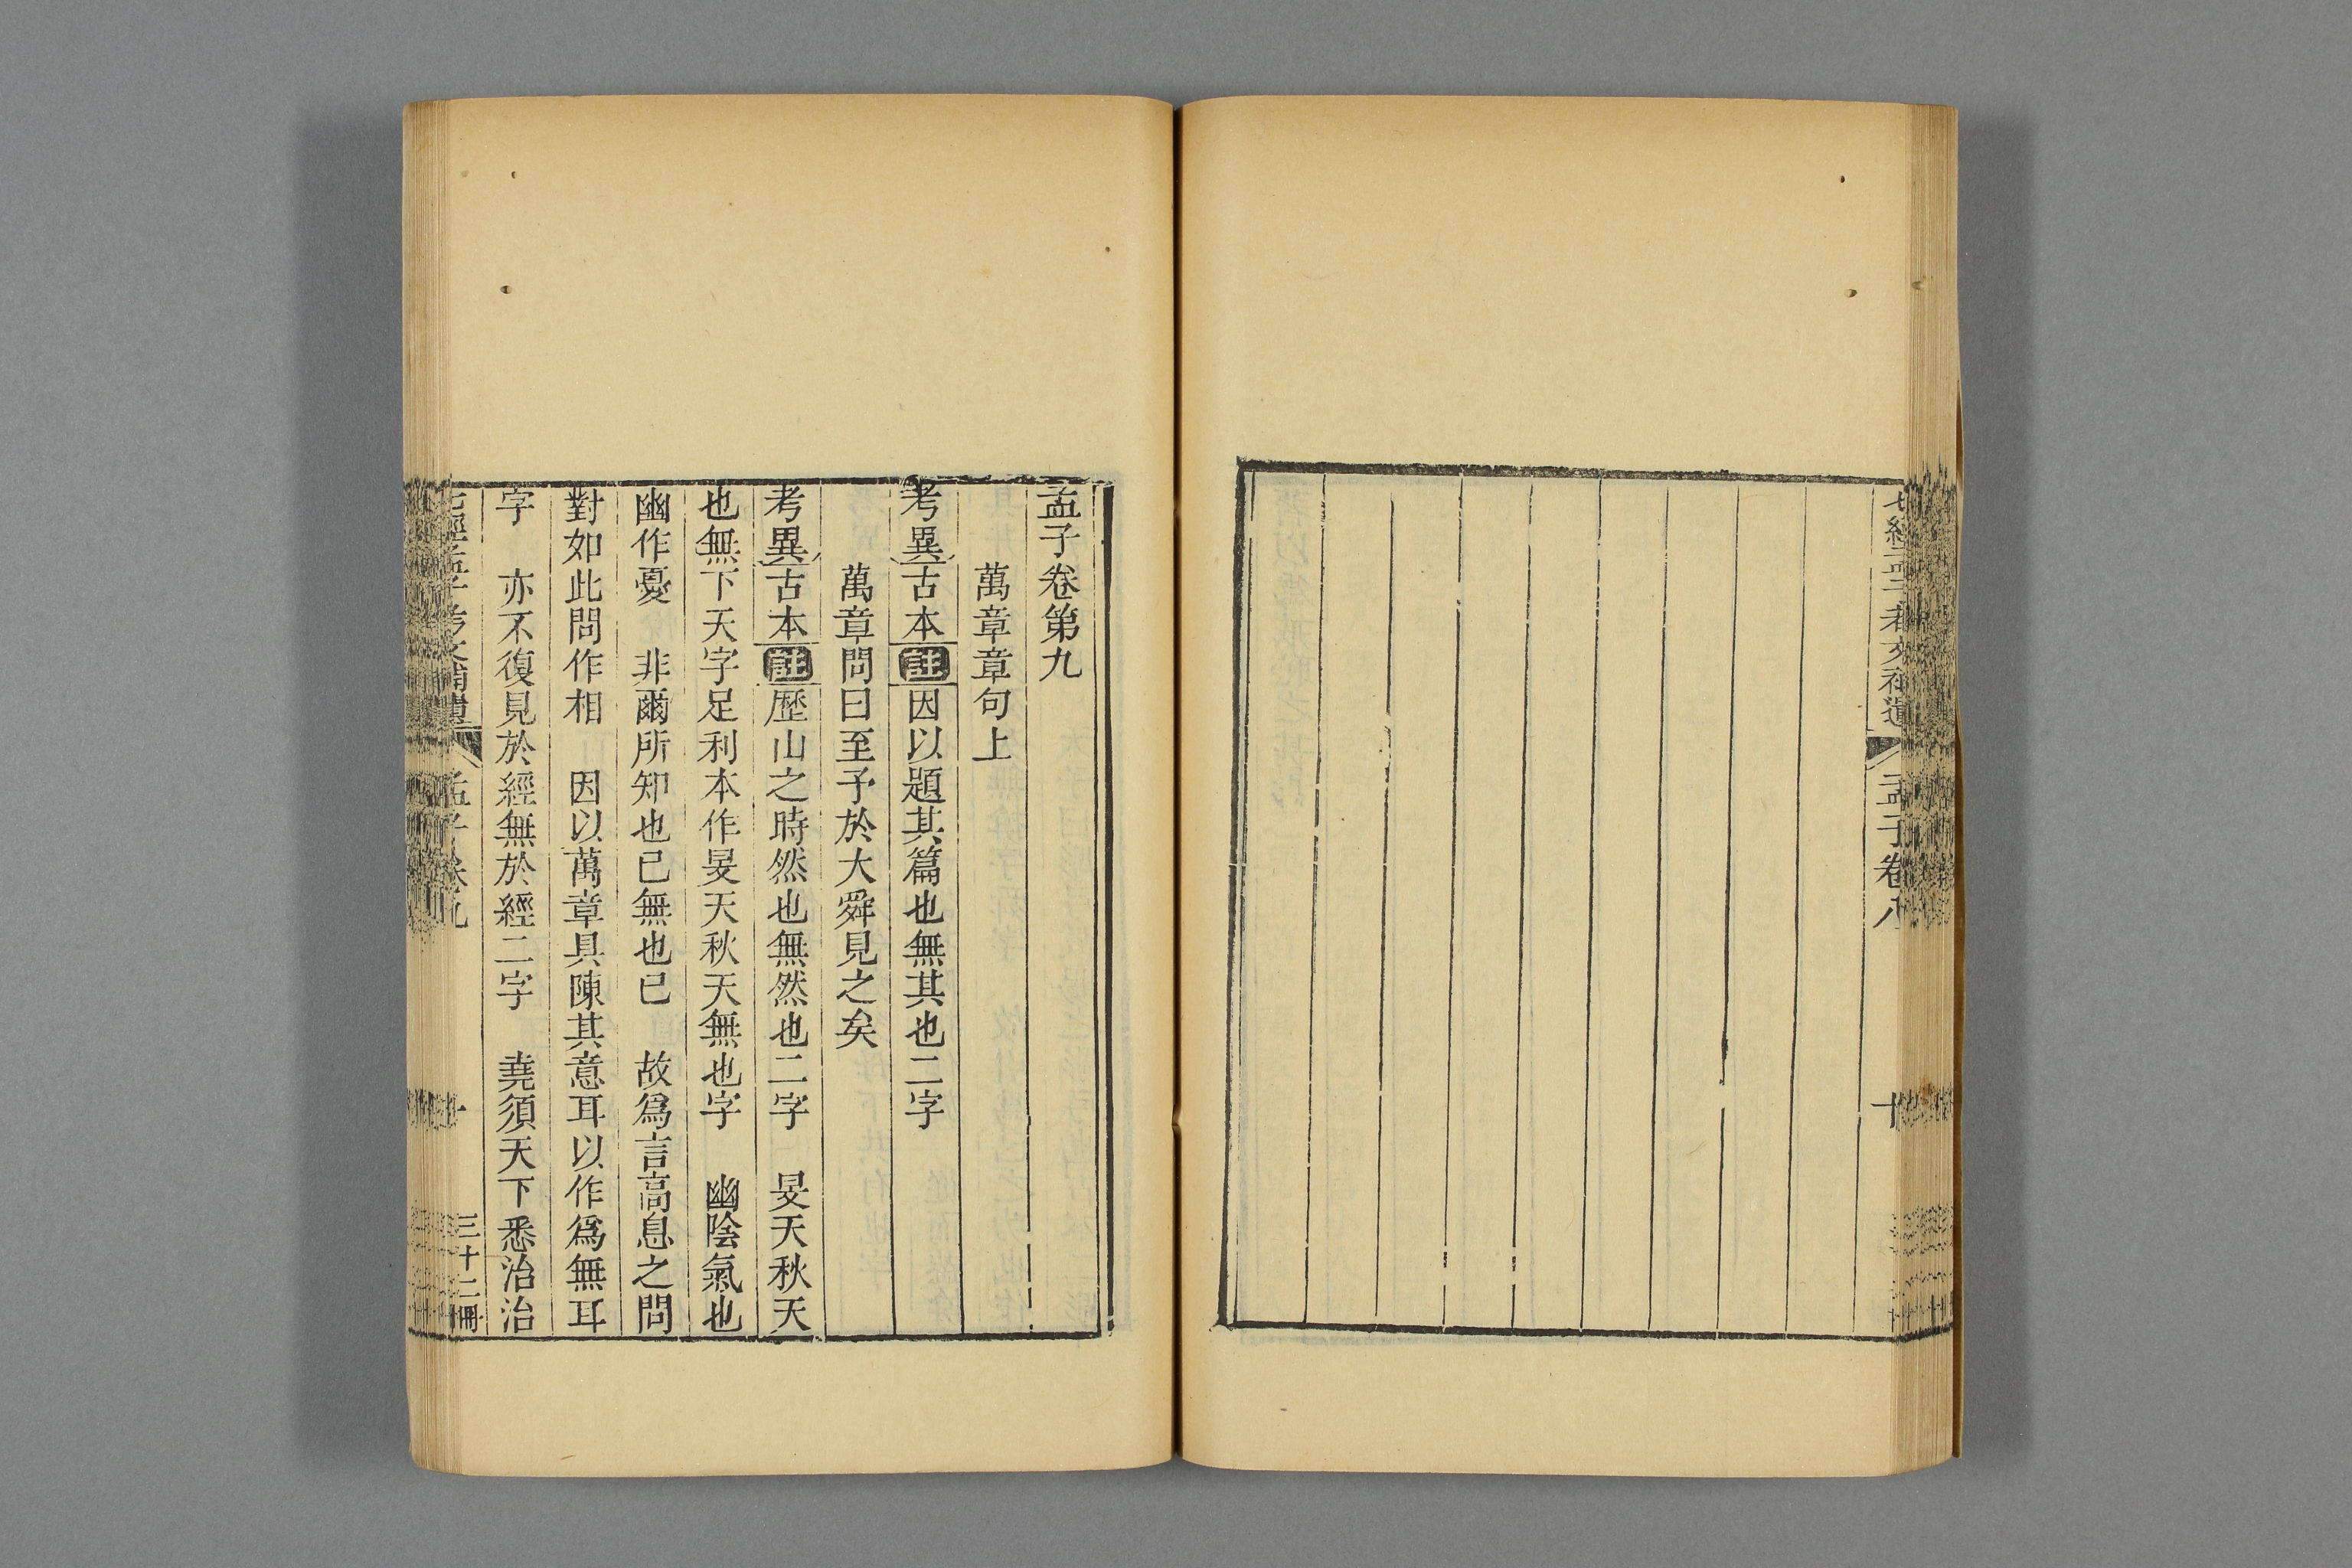 七經孟子考文補遺 孟子卷八 十
孟子卷第九
萬章章句上
考異古本註因以題其篇也無其也二字
萬章問曰至予於大舜見之矣
考異古本註歷山之時然也無然也二字 旻天秋天
也無下天字足利本作旻天秋天無也字 幽陰氣也
幽作憂 非爾所知也已無也已 故爲言高息之問
對如此問作相 因以萬章具陳其意耳以作爲無耳
字 亦不復見於經無於經二字 堯須天下悉治治
七經孟子考文補遺 孟子卷九 一 三十二冊